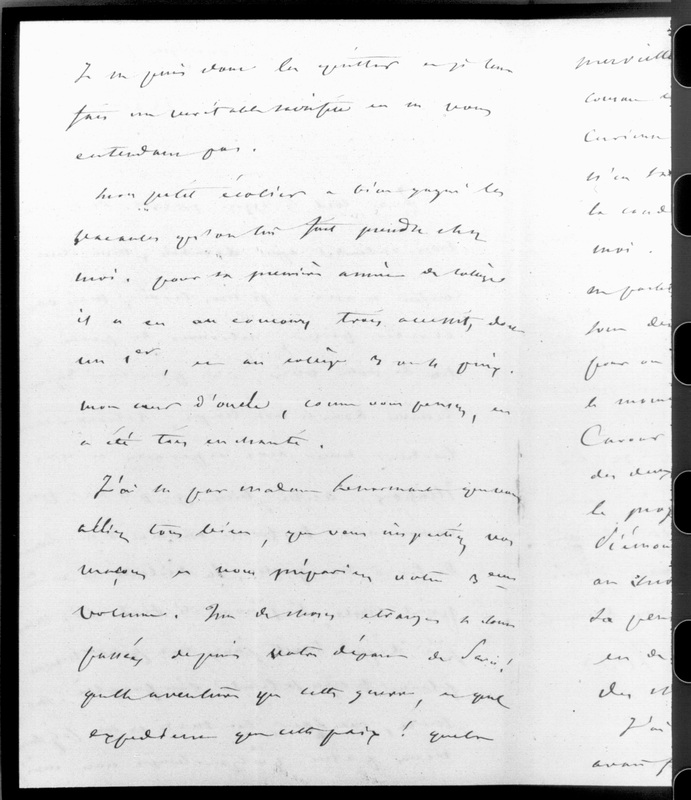 Je ne puis donc les quitter et je leur
fais un veritable sacrifice en ne vous
entendant pas.
Mon petit écolier a bien gagné les
vacances qu'on lui fait prendre chez
moi. pour sa première année de collège
il a eu au concours trois accessits, dont
un 1er, et au collège 3 ou 4 prix.
mon cœur d'oncle, comme vous pensez, en
a été très enchanté.
J'ai su par Madame Lenormant que vous
alliez tous bien, que vous inspectiez vos
maçons et nous prépariez votre 3eme
volume. Que de choses etranges se sont
passées depuis votre départ de Paris!
quelle aventure que cette guerre, et quel
expedient que cette paix! quelle
merveille
comme
Curieuse
n'en
la
moi.
me
soin des
pour
le
Cavour
des deux
la
d'
au
Sa
en de
des
J'ai
avant